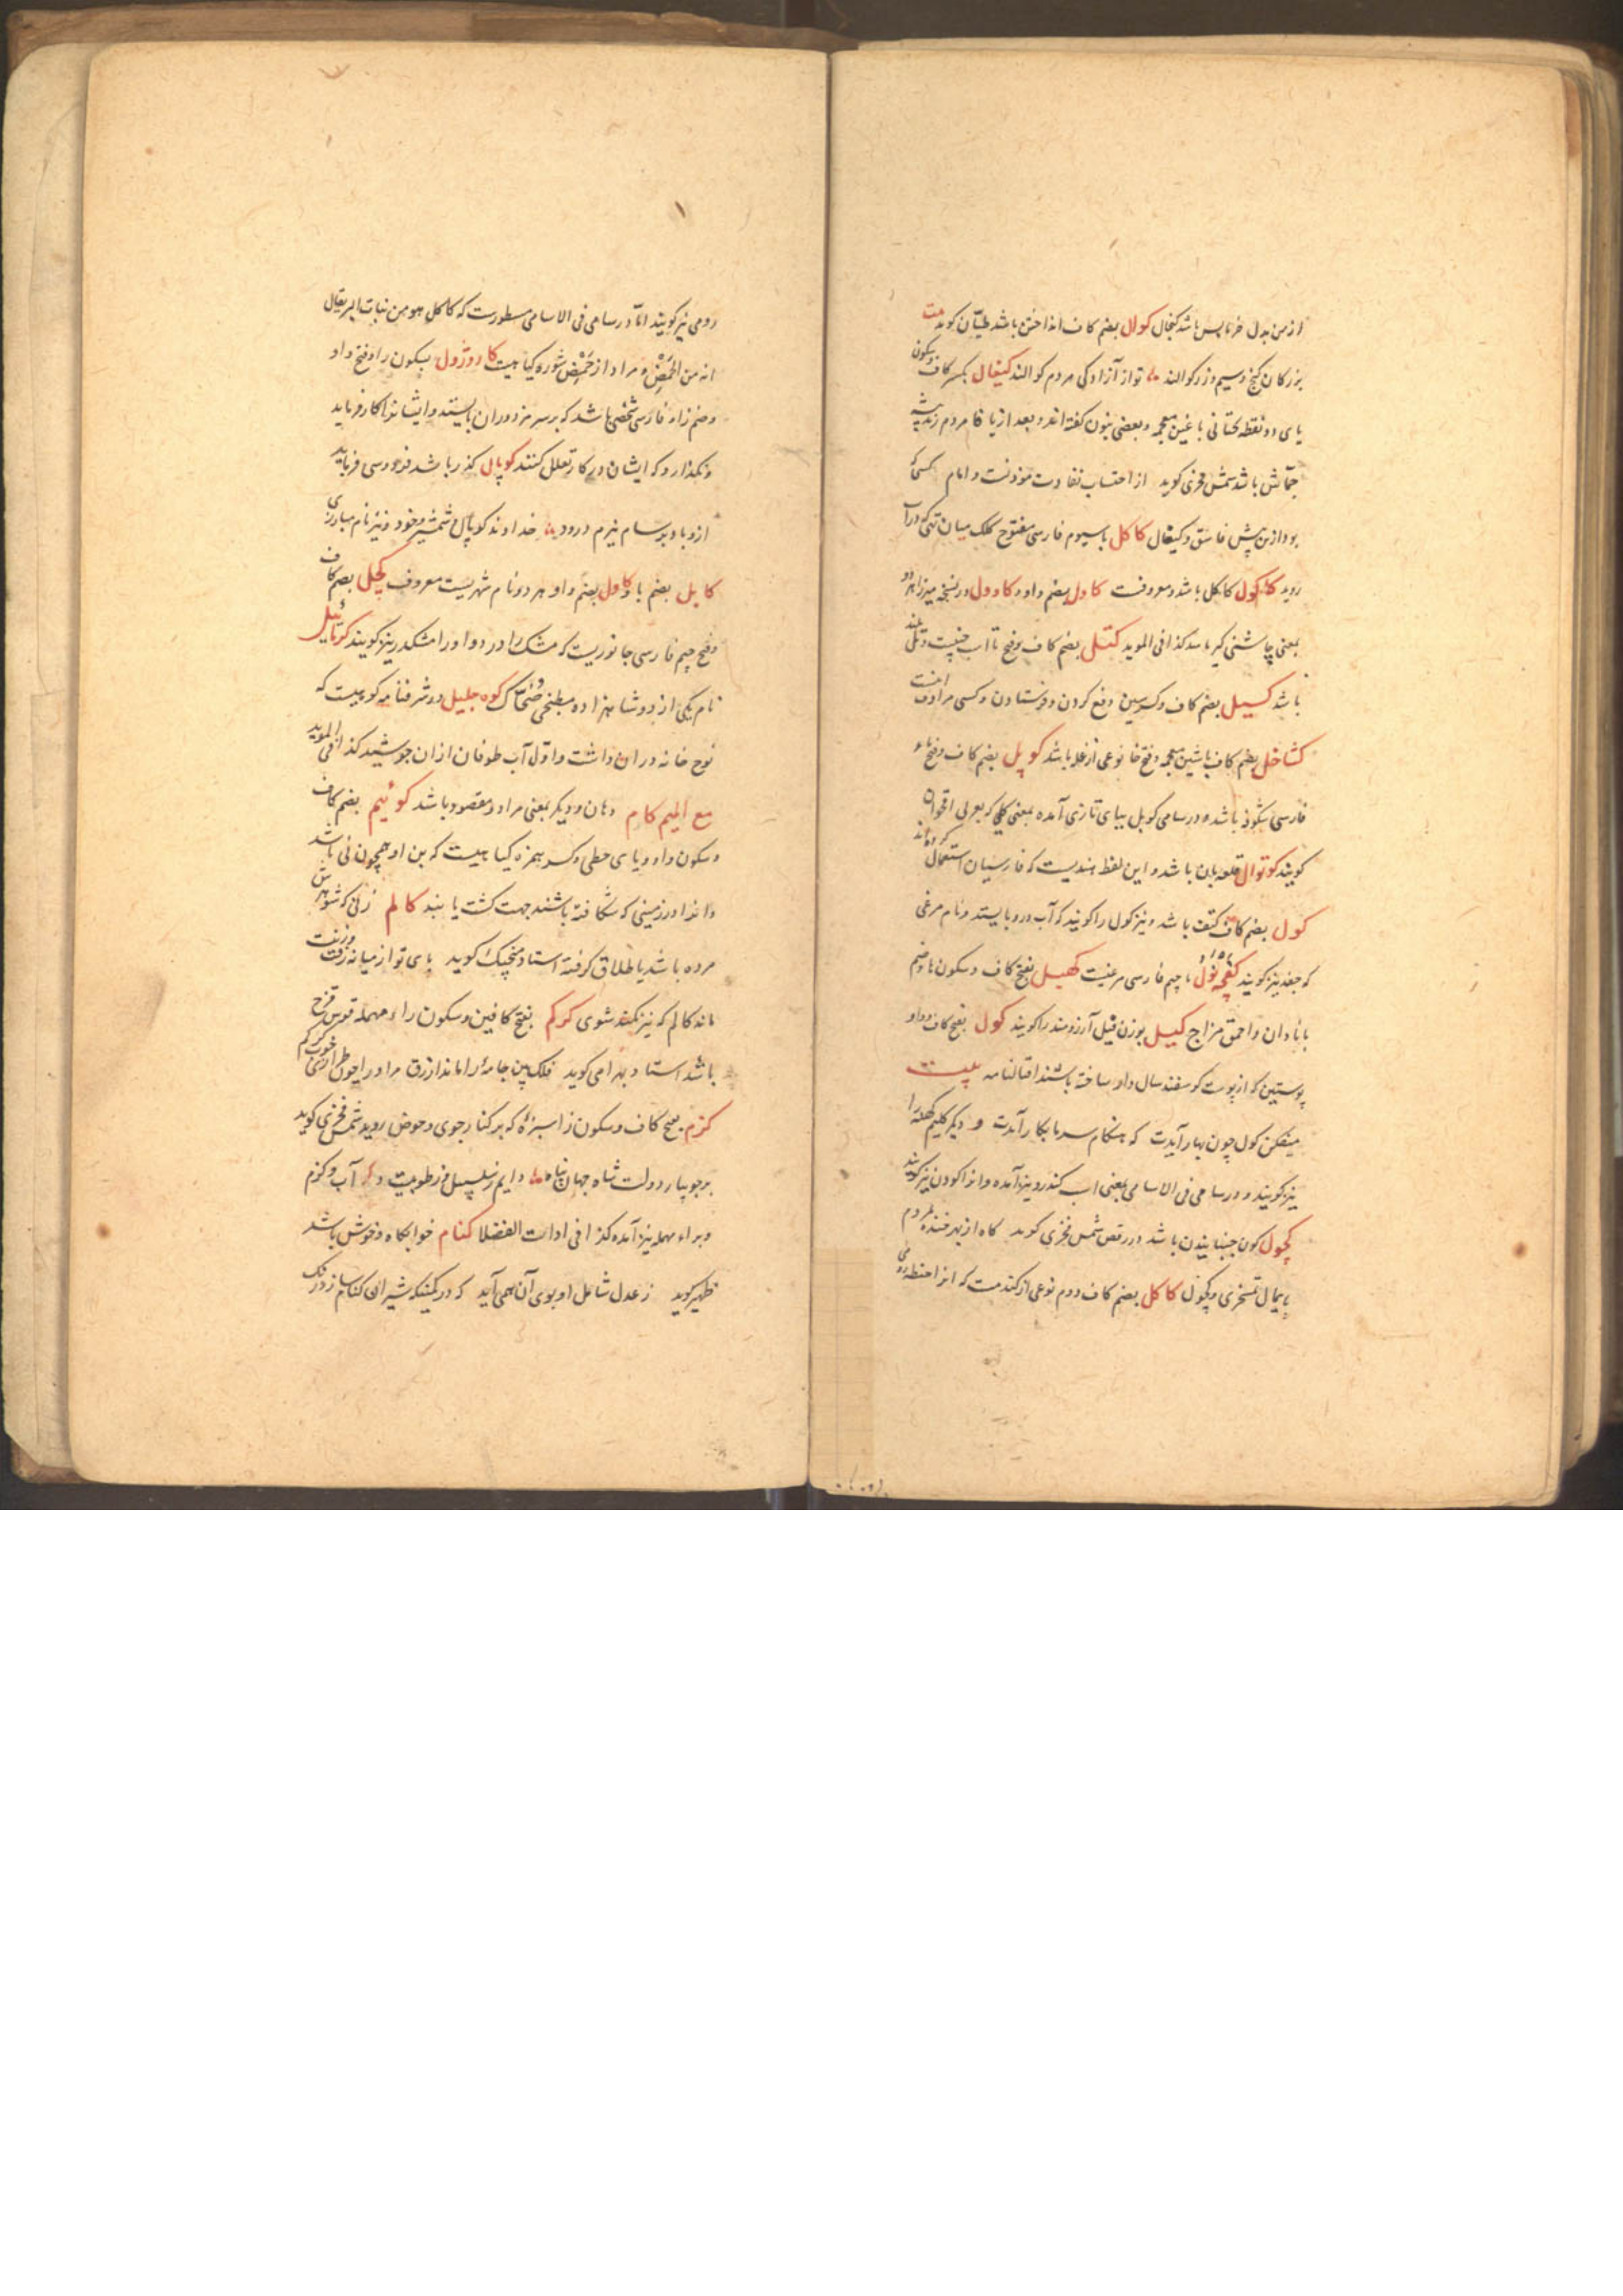 از من بدل خرما پس باشد کنجال کوال بضم کاف انداختن باشد طیّان کوید بیت
بزرکان کنج و سیم و زر کوالند تو از آزادکی مردم کوالند کیغال بکسر کاف و سکون
یای دو نقطه تحتانی با غین معجمه و بعضی بنون کفته اند و بعد از یا فا مردم رند پیشه
جمّاش باشد شمس فخری کوید از احتساب نفاذت موذنست و امام کسی که
بود ازین پیش فاسق و کیغال کاکل با سیوم فارسی مفتوح کلک میان تهی که در آب
روید کاکول کاکل باشد و معروفست کاول بضم واو و کاوول در نسخه میرزا هر دو
بمعنی چاشنی کیر باشد کذا فی الموید کتل بضم کاف و فتح تا اسب جنیبت و تلی بلند
باشد کسیل بضم کاف و کسر سین دفع کردن و فرستادن و کسی مرادف اینست
کشاخل بضم کاف با شین معجمه و فتح خا نوعی از غله باشد کوپل بضم کاف و فتح باء
فارسی شکوفه باشد و در سامی کوبل ببای تازی آمده بمعنی کلی که بعربی اقحوان
کویند کوتوال قلعه بان باشد و این لفظ هندیست که فارسیان استعمال کرده اند
کول بضم کاف کتف باشد و نیز کول را کویند که آب در و بایستد و نام مرغی
که جغد نیز کویند کفچه نول با جیم فارسی مرغیست کهبل بفتح کاف و سکون ها و ضم
با نادان و احمق مزاج کیل بوزن فیل آرزومند را کویند کول بفتح کاف و واو
پوستین که از پوست کوسفند سال دار ساخته باشند اقبالنامه بیت
میفکن کول چون بهار آیدت که هنکام سرما بکار آیدت و دیکر کلیم کهنه را
نیز کویند و در سامی فی الاسامی بمعنی اسب کندرو نیز آمده و انرا کودن نیز کویند
کچول کون جنبانیدن باشد در رقص شمس فخری کوید کاه از بهر خنده مردم
پایمال تمسخری و کچول کاکل بضم کاف دوم نوعی از کندمست که انرا حنطه رومی
رومی نیز کویند امّا در سامی فی الاسامی مسطورست که کاکل هو من نبات البر یقال
انه من الحَمْض و مراد از حَمْض شوره کیا هیست کاروژول بسکون را و فتح واو
و ضم زاء فارسی شخصی باشد که بر سر مزدوران بایستد و ایشانرا کار فرماید
و نکذارد که ایشان در کار تعلل کنند کوپال کذر باشد فردوسی فرماید
ازو باد بر سام نیرم درود خداوند کوپال و شمشیر و خود و نیز نام مبارزی
کابل بضم با و کاول بضم واو هر دو نام شهریست معروف کچل بضم کاف
و فتح جیم فارسی جانوریست که مشک را در دو او را مشکدر نیز کویند کرمائیل
نام یکی از دو شاهزاده مطبخی ضحّاک کوه جلیل در شرفنامه کوهیست که
نوح خانه در ان داشت و اوّل آب طوفان از ان جوشید کذا فی الموید
مع المیم کام دهان و دیکر بمعنی مراد و مقصود باشد کوئیم بضم کاف
و سکون واو و یای حطی و کسر همزه کیا هیست که بن او همچون نی باشد
و انرا در زمینی که شکافته باشند جهت کشت یابند کالم زنی که شوهرش
مرده باشد یا طلاق کرفته استاد منجیک کوید بای تو از میانه رفت و زنت
ماند کالم که نیز نکند شوی کرکم بفتح کافین و سکون راء مهمله قوس قزح
باشد استاد بهرامی کوید فلک بین جامهٔ را ماند ازرق مرا و را چون طرازی خوب کرکم
کزم بفتح کاف و سکون زا سبزهٔ که بر کنار جوی و حوض روید شمس فخری کوید
بر جویبار دولت شاه جهان پناه دایم ز سلسبیل فزر طوبیست و آب و کزم
و براء مهمله نیز آمده کذا فی ادات الفضلا کنام خوابکاه وحوش باشد
ظهیر کوید ز عدل شامل او بوی آن همی آید که در کمینکه شیران کنام سازد رنک